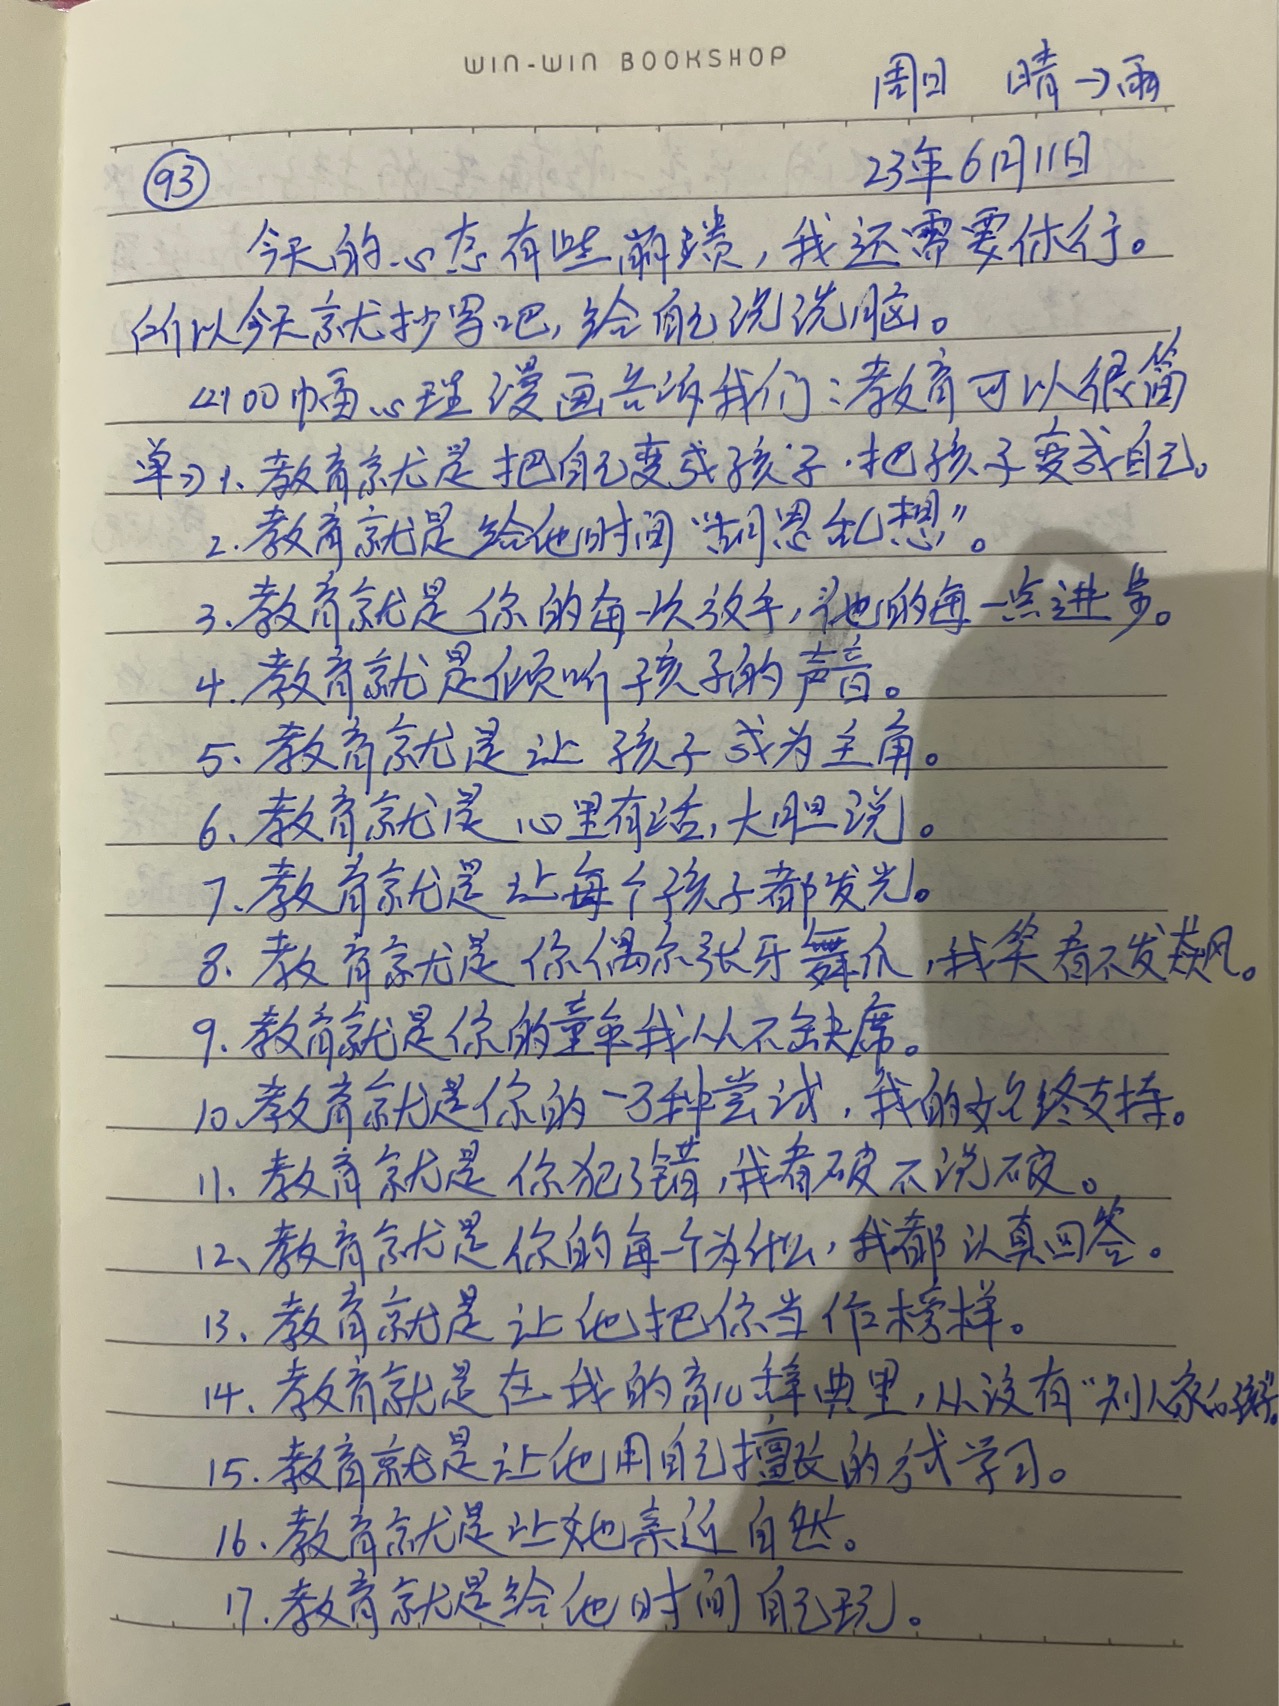 WIN-WIN BOOKSHOP
周日 晴→雨
93
23年6月11日
今天的心态有些崩溃，我还需要修行。
所以今天就抄写吧，给自己洗洗脑。
《100幅心理漫画告诉我们：教育可以很简
单》1、教育就是把自己变成孩子，把孩子变成自己。
2、教育就是给他时间“胡思乱想”。
3、教育就是你的每一次放手，他的每一点进步。
4、教育就是倾听孩子的声音。
5、教育就是让孩子成为主角。
6、教育就是心里有话，大胆说。
7、教育就是让每个孩子都发光。
8、教育就是你偶尔张牙舞爪，我笑看不发飙。
9、教育就是你的童年我从不缺席。
10、教育就是你的一万种尝试，我的始终支持。
11、教育就是你犯了错，我看破不说破。
12、教育就是你的每一个为什么，我都认真回答。
13、教育就是让他把你当作榜样。
14、教育就是在我的育儿辞典里，从没有“别人家的孩子”。
15、教育就是让他用自己擅长的方式学习。
16、教育就是让她亲近自然。
17、教育就是给他时间自己玩。